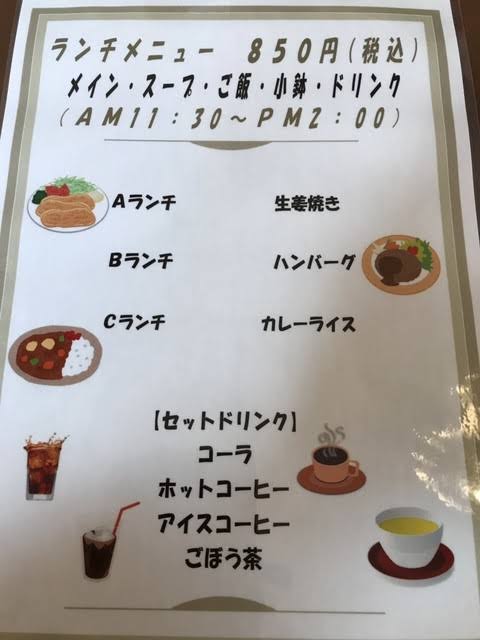 ランチメニュー　850円(税込)
メイン・スープ・ご飯・小鉢・ドリンク
(AM11:30～PM2:00)
Aランチ　生姜焼き
Bランチ　ハンバーグ
Cランチ　カレーライス
【セットドリンク】
コーラ
ホットコーヒー
アイスコーヒー
ごぼう茶